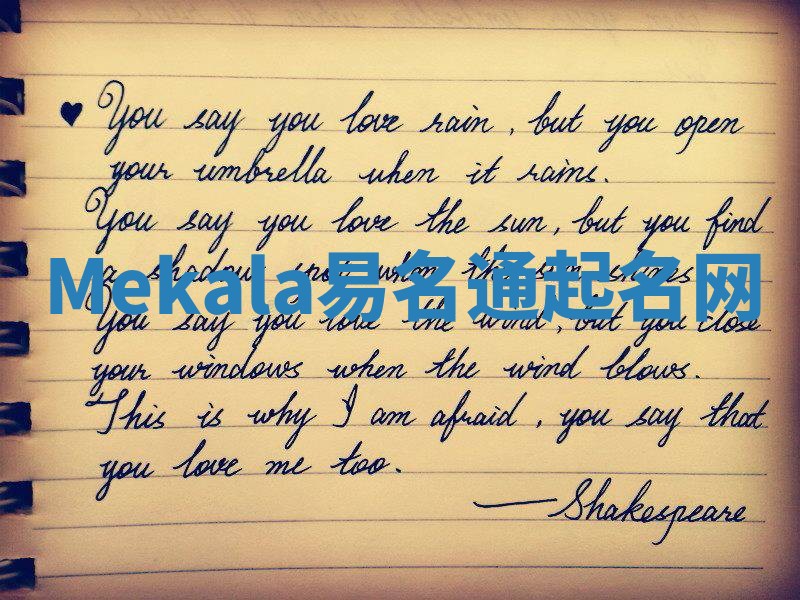 ♥ You say you love rain, but you open
your umbrella when it rains.
You say you love the sun, but you find
a shadow spot when the sun shines
Mekala易名通起名网
You say you love the wind, but you close
your windows when the wind blows.
This is why I am afraid, you say that
you love me too.
—Shakespeare